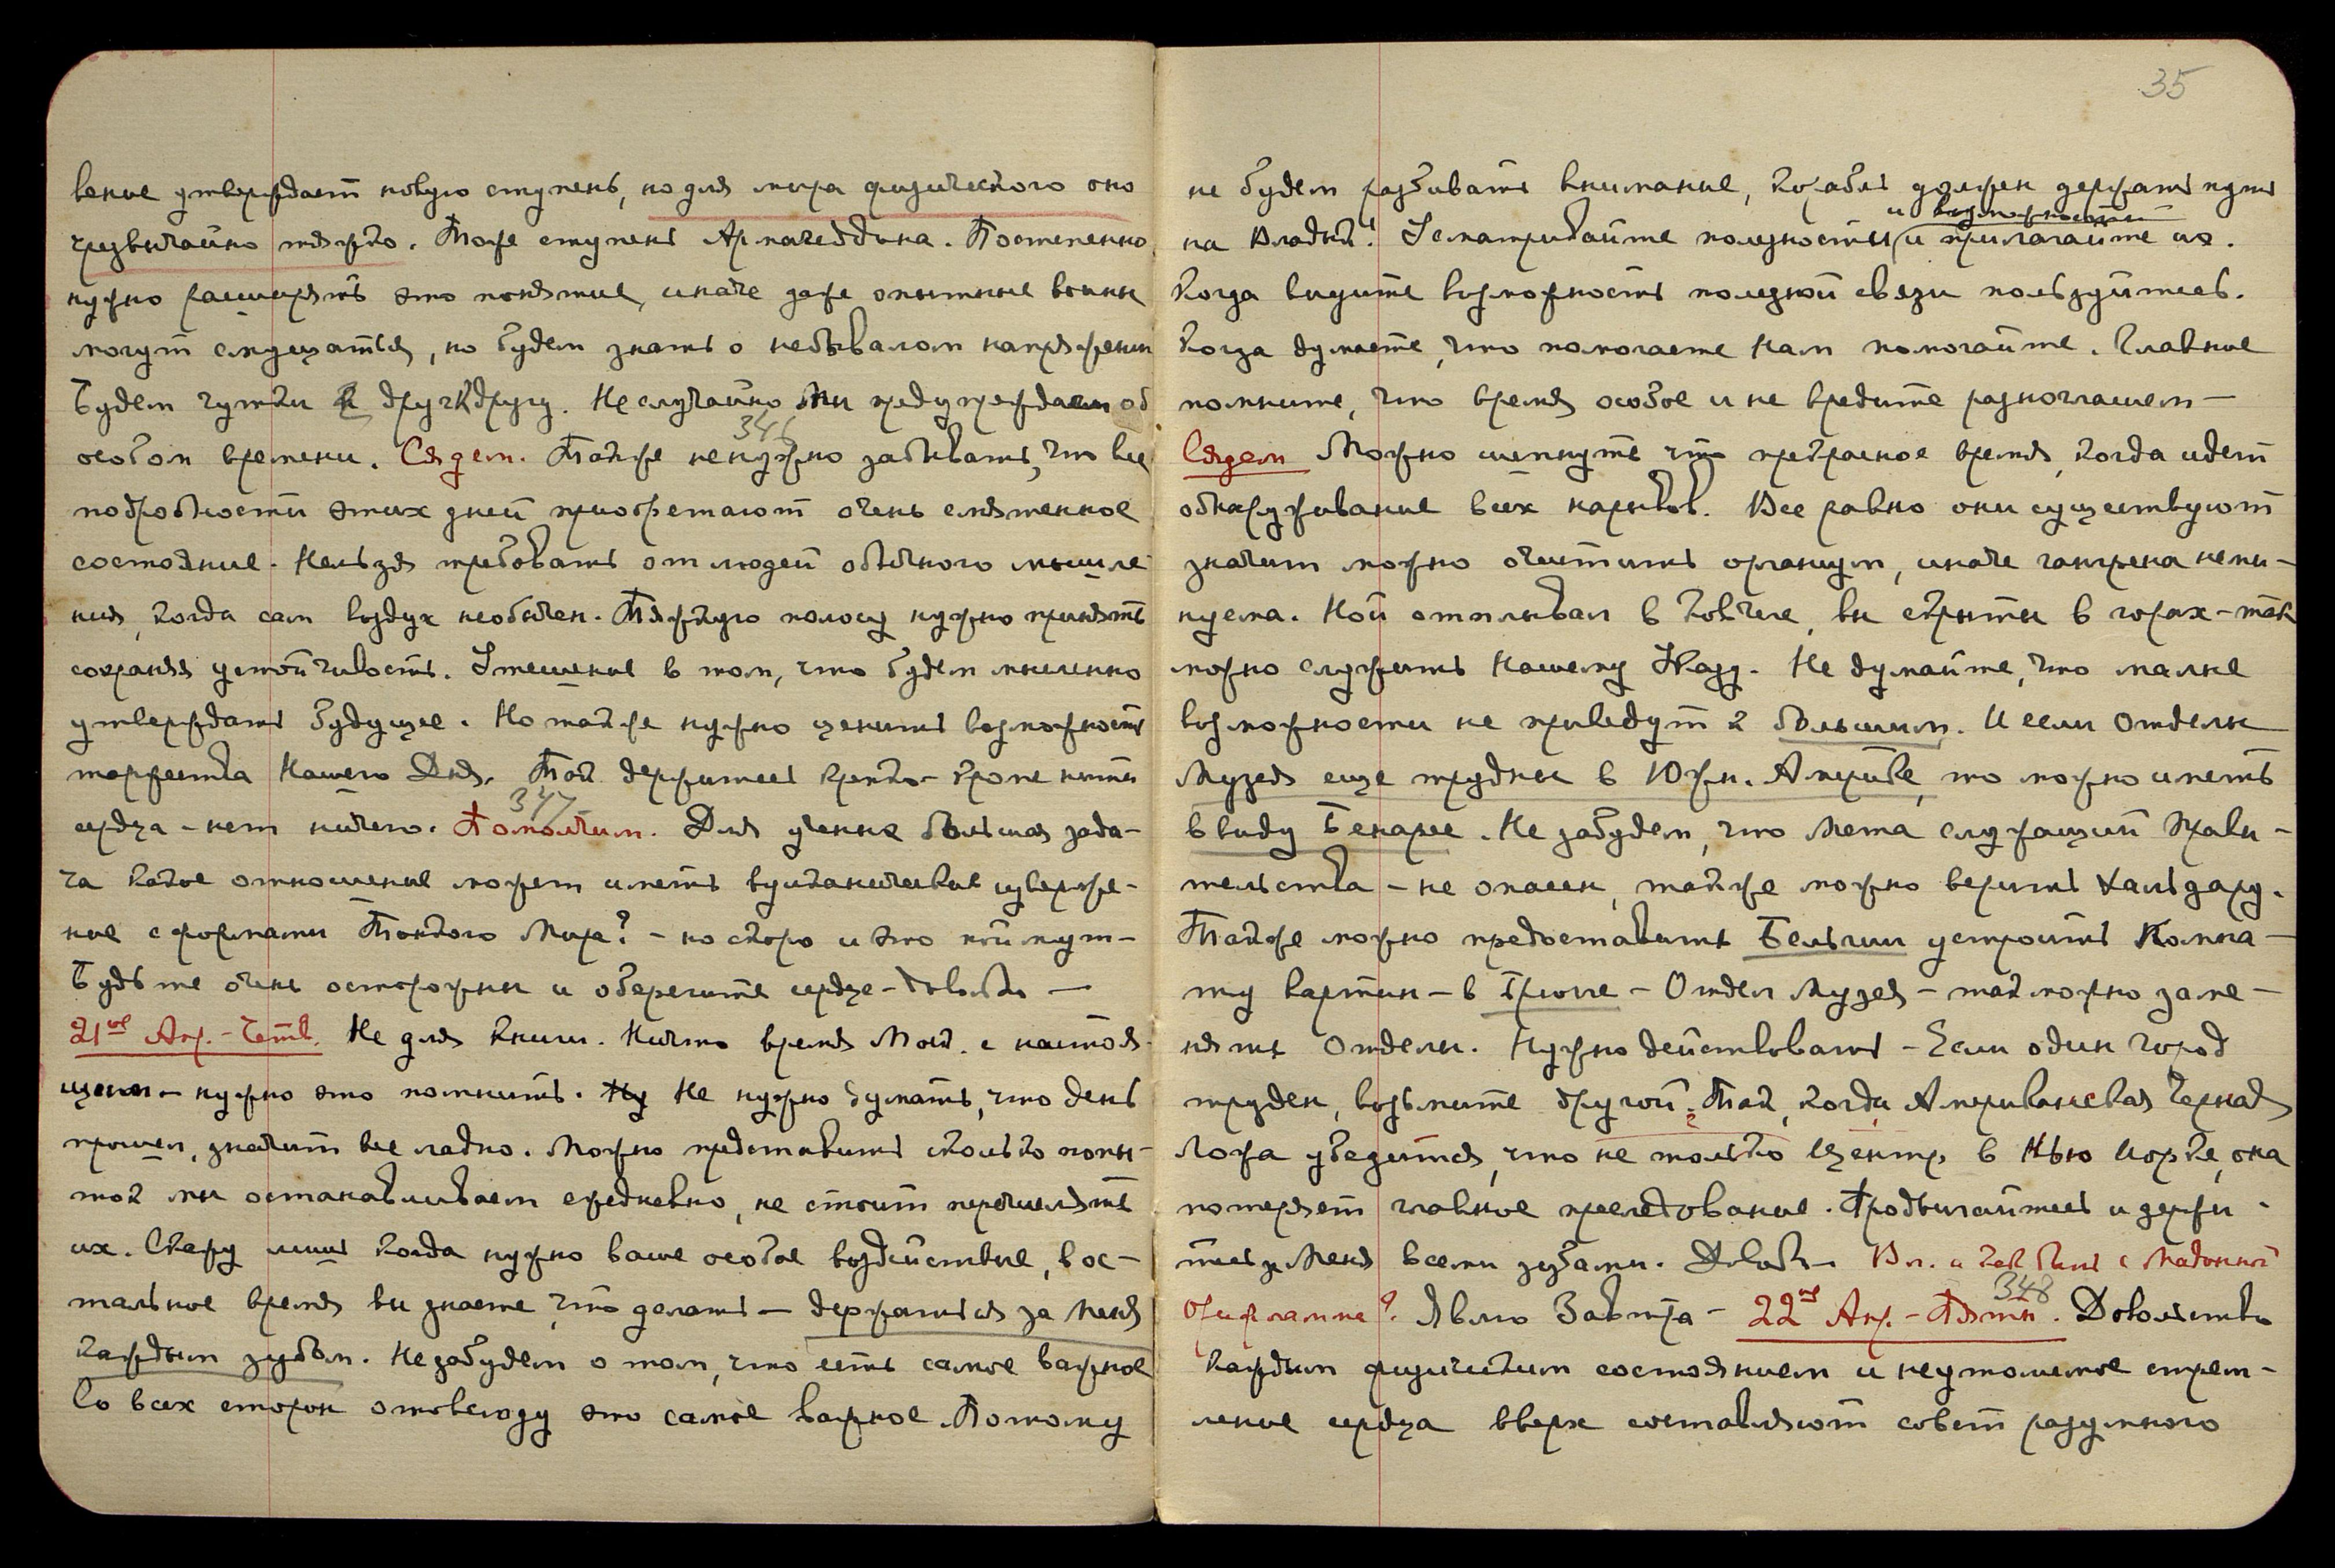 вение утверждает новую ступень, но для мира физического оно
чрезвычайно тяжко. Тоже ступень Армагеддона. Постепенно
нужно расширять это понятие, иначе даже опытные воины
могут смущаться, но будем знать о небывалом напряжении
Будем чутки к друг к другу. Не случайно Мы предупреждаем об
346
особом времени. Сядем. Также не нужно забывать, что все
подробности этих дней приобретают очень смятенное
состояние. Нельзя требовать от людей обычного мышле-
ния, когда сам воздух необычен. Тяжкую полосу нужно принять
сохраняя устойчивость. Утешение в том, что будем мысленно
утверждать будущее. Но также нужно ценить возможность
торжества Нашего Дня. Так держитесь крепко - кроме нити
347
сердца - нет ничего. Помолчим. Для ученых большая зада-
ча какое отношение может иметь вулканическое изверже-
ние с формами Тонкого Мира? - но скоро и это поймут -
Будьте очень осторожны и оберегите сердце - Довольно —
21ое Апр. - Четв. Не для книги. Ничто время Моис. с настоя-
щим - нужно это помнить. Ну Не нужно думать, что день
прошел, значит все ладно. Можно представить сколько попы-
ток мы останавливаем ежедневно, не стоит перечислять
их. Скажу лишь когда нужно ваше особое воздействие, в ос-
тальное время вы знаете, что делать — держаться за Меня
каждым зубом. Не забудем о том, что есть самое важное
Со всех сторон отовсюду это самое важное. Потому
35
не будем разбивать внимание, корабль должен держать путь
и возможности
на Владык! Усматривайте полезности и прилагайте их.
Когда видите возможность полезной связи пользуйтесь.
Когда думаете, что помогаете Нам помогайте. Главное
помните, что время особое и не вредите разногласием —
Сядем Можно шепнуть что прекрасное время, когда идет
обнаруживание всех нарывов. Все равно они существуют
значит можно очистить организм, иначе гангрена неми-
нуема. Ной отплывал в ковчеге, вы скрыты в горах - так
можно служить Нашему Указу. Не думайте, что малые
возможности не приведут к большим. И если Отделы
Музея еще трудны в Южн. Америке, то можно иметь
в виду Бенарес. Не забудем, что Мета служащий Прави-
тельства - не опасен, также можно верить Хальдару.
Также можно предоставить Бельгии устроить Комна-
ту картин - в Брюгге - Отдел Музея - так можно заме-
нять Отделы. Нужно действовать - Если один город
труден, возьмите другой. Так, когда Американская Черная
Ложа убедится, что не только Центр в Нью Иорке, она
потеряет главное преследование. Продвигайтесь и держи-
тесь за Меня всеми зубами. Довольн— Вл. а как быть с Мадонной
348
Орифламме? Явлю Завтра - 22ое Апр. - Пятн. Довольство
каждым физическим состоянием и неутомимое стрем-
ление сердца вверх составляют совет разумного